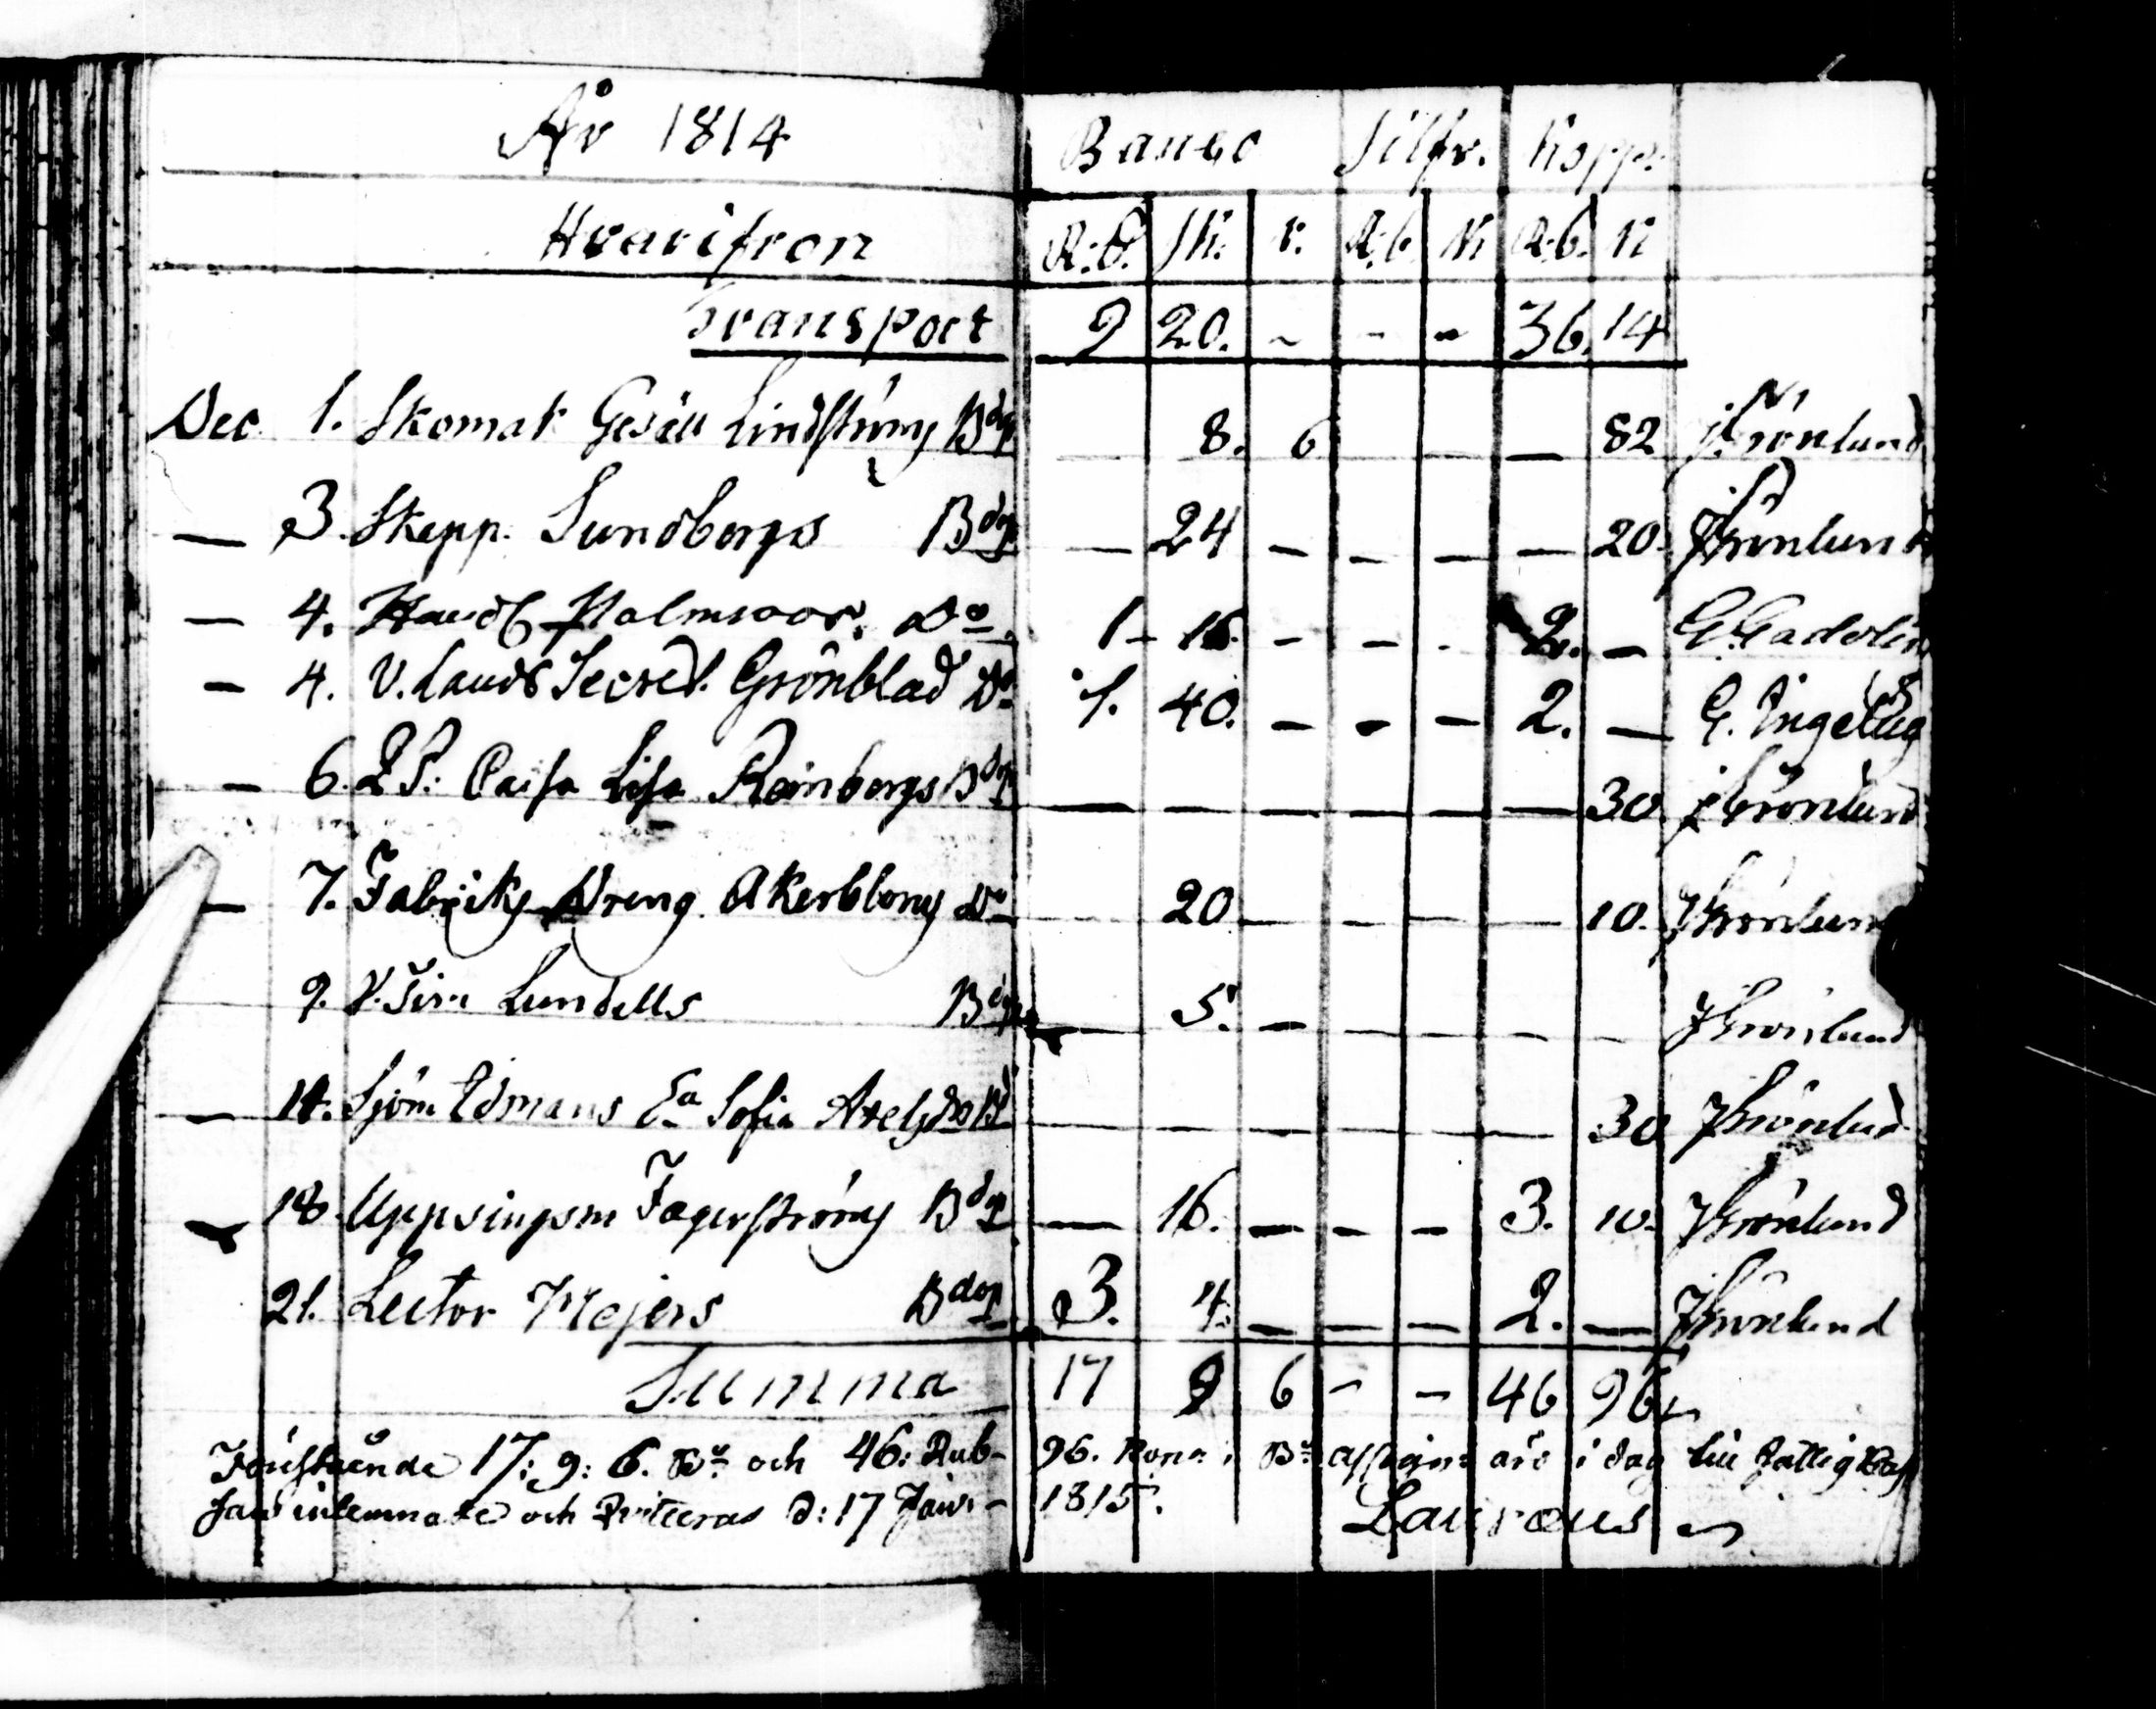 År 1814 Banco Silfv. Kopp.
Hvarifron R:d. sk. r. R:b. K R:b. K
Transport 9 20. - - - 36. 14
Dec 1. Skomak Gesäll Lindström Bdop 8. 6 — — 82 J Grönlund
— 3. Skepp. Sundbergs Bdop — 24 — — — — 20. J Grönlund
— 4. Handl Malmroos. Do 1 - 16. - - - 2. — G. Gadolin
— 4. V. Lands Secret. Grönblad Do 1. 40. — — — 2. — G. Ingelius
— 6. QP: Caisa Lisa Reinbergs Bdop — — — — — — 30. J Grönlund
— 7. Fabriks Dreng Akerblom Do 20 — — — — 10. J Grönlund
9. V. Lundells Bdop — 5. — — — — — J Grönlund
— 14. Sjöm Edmans Ea Sofia Axels Bd — — — — — — 30 J Grönlund
— 18. Uppsingsm Fagerström Bdop — 16. — — — 3. 10. J Grönlund
21. Lector Mejers Bdop 3. 4. — — — 2. — J Grönlund
Summa 17 9 6 - - 46 96
Förestående 17: 9: 6. Bo och 46: Rub- 96. Kop. i Bo assign: äro i dag til Fattig Cas
san inlemnade och qvitteras d: 17 Janr - 1815.
Lauraeus